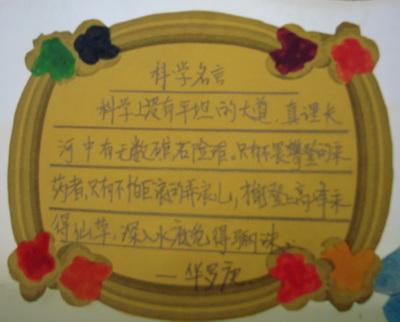 科学名言
科学上没有平坦的大道,真理长
河中有无数礁石险滩。只有不畏攀登的采
药者,只有不怕巨浪的弄潮儿,才能登上高峰采
得仙草,深入水底觅得骊珠。
——华罗庚